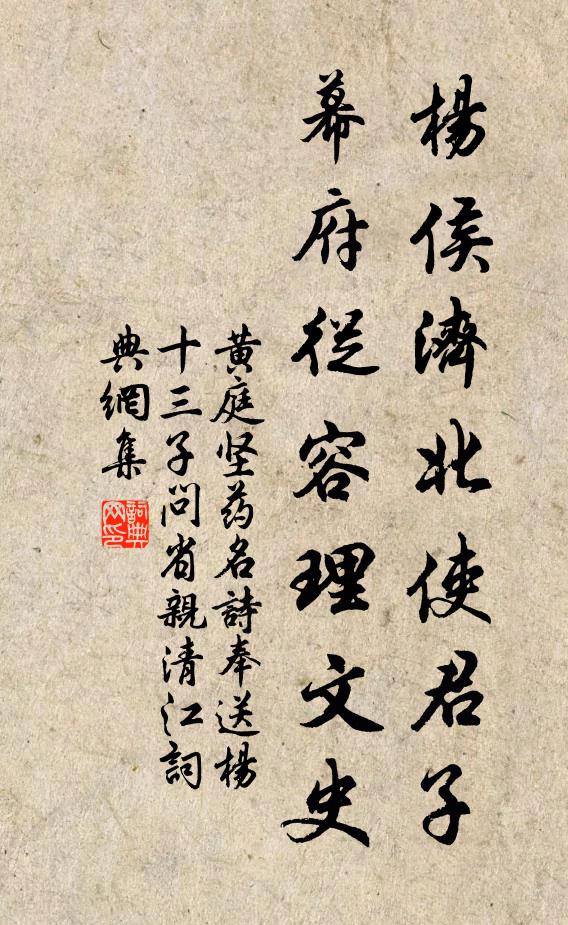 楊侯濟北使君子
幕府從容理文史
黃庭坚药名詩奉送楊
十三子问省親清江詞
典網集
詞典
网印